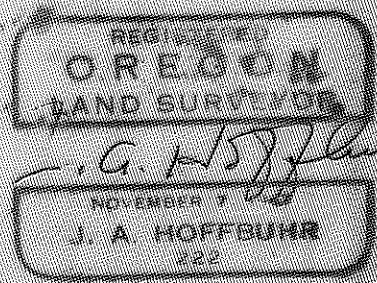 REGISTERED
OREGON
LAND SURVEYOR
J. A. Hoffbuhr
NOVEMBER 7
J. A. HOFFBUHR
222